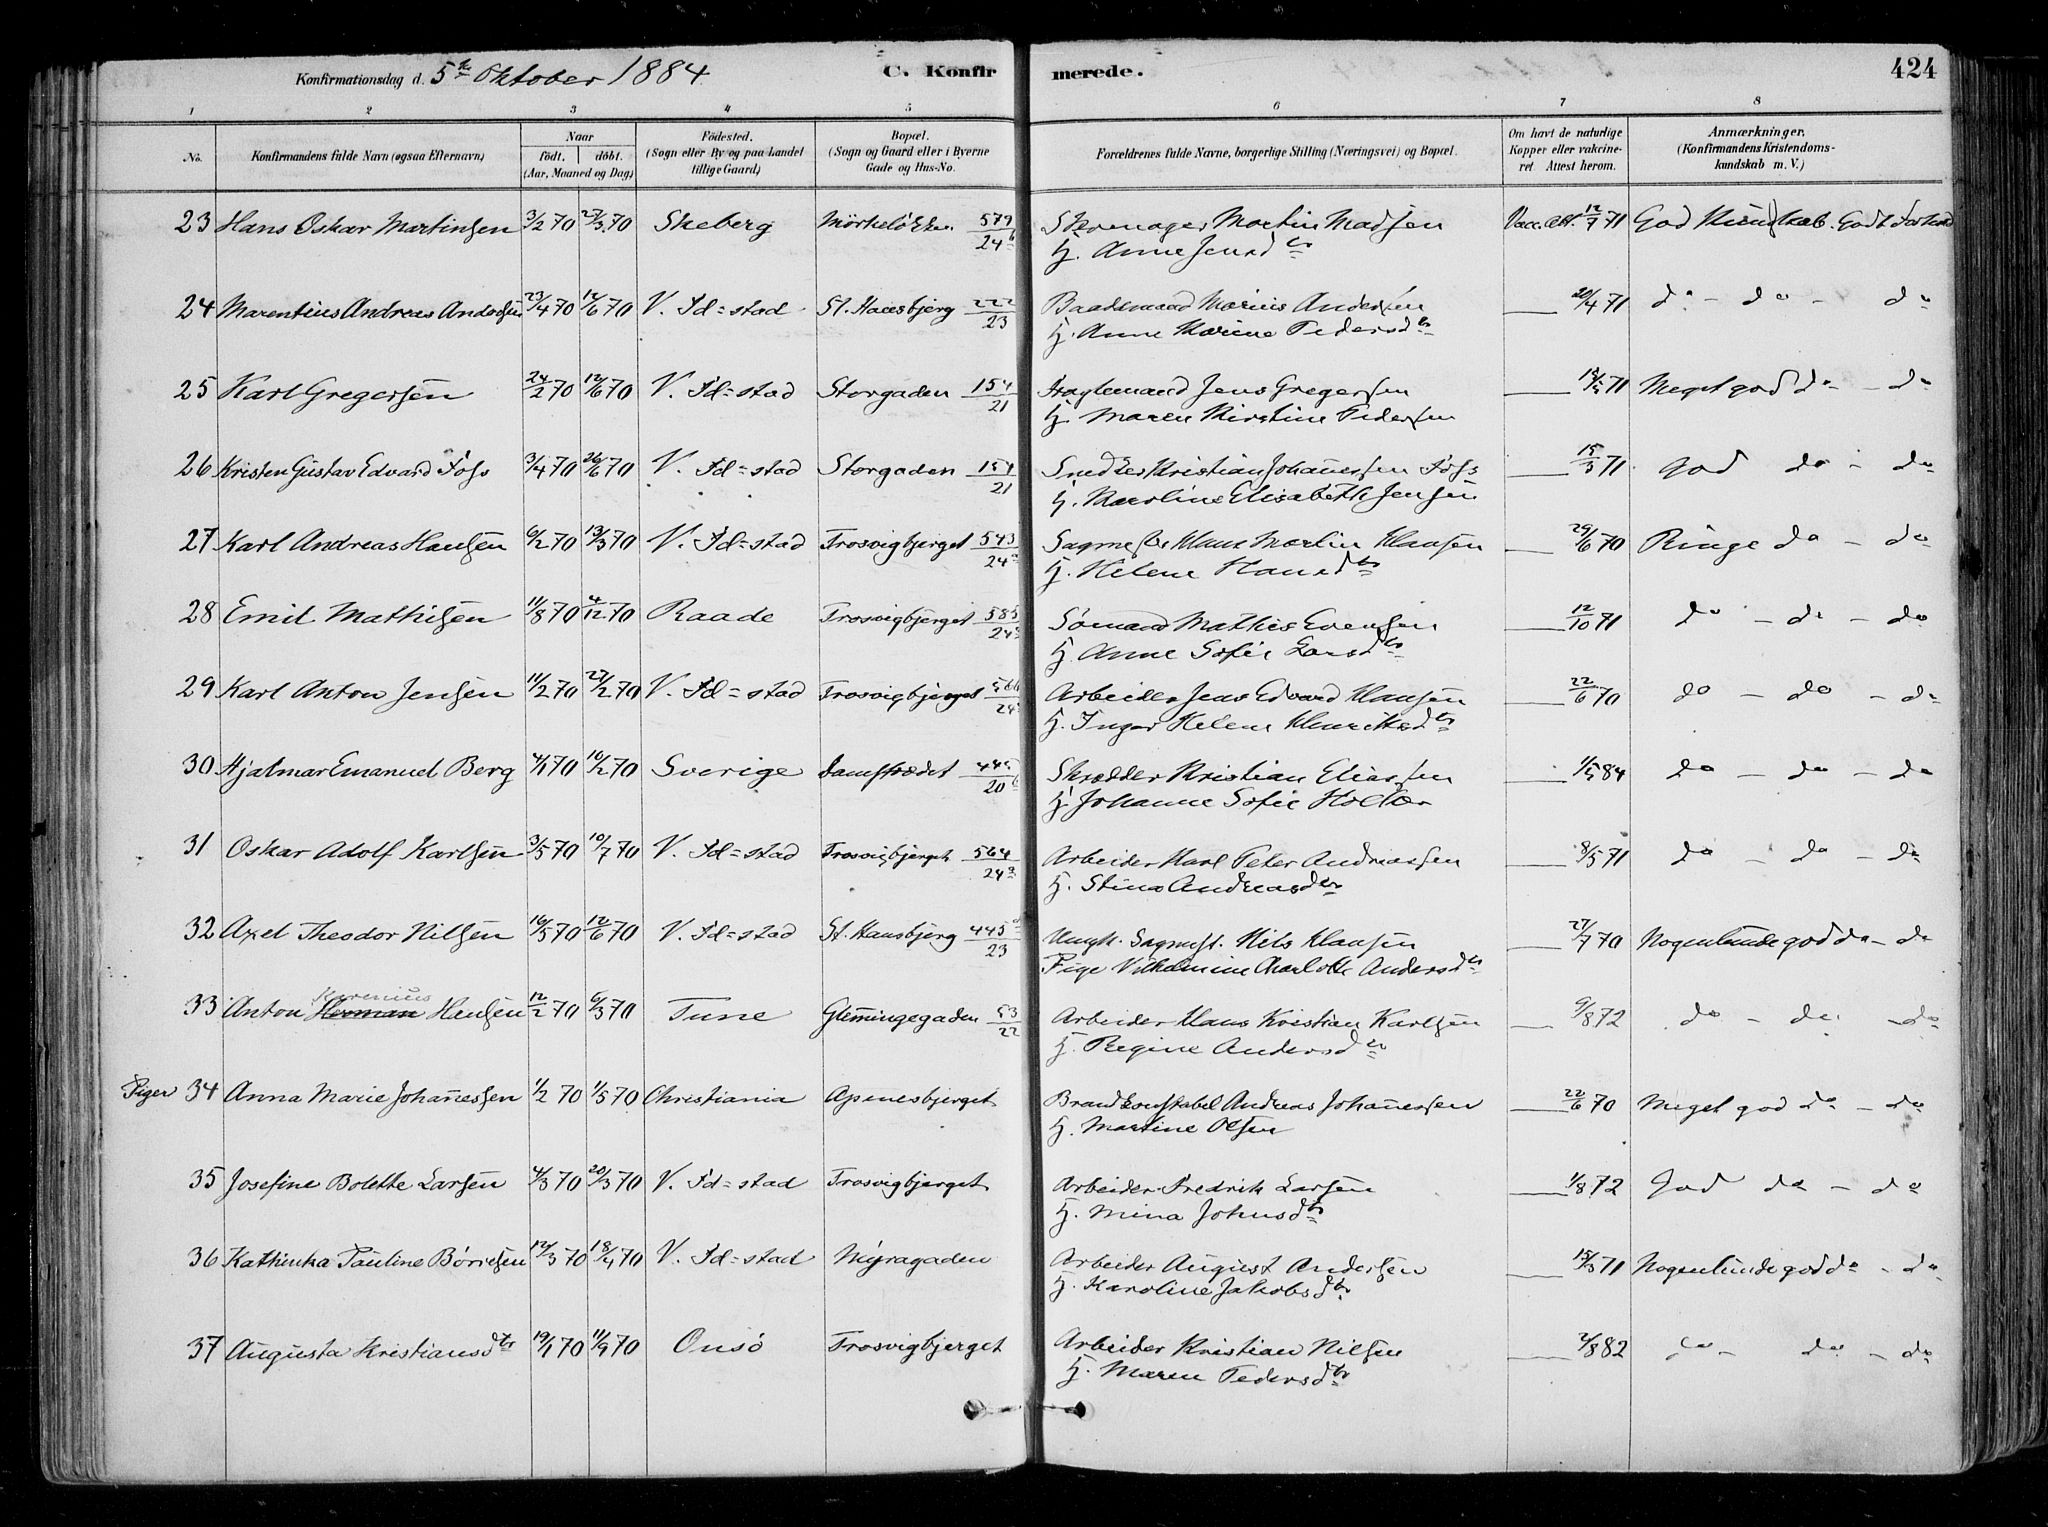 Konfirmationsdag d. 5te Oktober 1884 C. Konfirmerede. 424
1 2 3 4 5 6 7 8
No. Konfirmandens fulde Navn (ogsaa Efternavn) Naar født. døbt. (Aar, Maaned og Dag) Födested. (Sogn eller By og paa Landet tillige Gaard) Bopæl. (Sogn og Gaard eller i Byerne Gade og Hus-No. Forældrenes fulde Navne, borgerlige Stilling (Næringsvei) og Bopæl. Om havt de naturlige Kopper eller vakcineret Attest herom. Anmærkninger. (Konfirmandens Kristendomskundskab m. V.)
23 Hans Oskar Martinsen 3/2 70 27/3 70 Skeberg 579/24b Skomager Martin Madsen Vacc. att. 12/7 71 God Kundskab. Godt Forhold
H. Anne Jensdtr
24 Marentius Andreas Andersen 23/4 70 12/6 70 V. Fd=stad St. Hansbjerg 222/23 Baadsmand Marius Andersen 20/4 71 do - do - do
H. Anne Marine Pedersdtr
25 Karl Gregersen 24/2 70 12/6 70 V. Fd=stad Storgaden 154/21 Jens Gregersen 71 Meget god do - do
H. Maren Kirstine Pedersen
26 Kristen Gustav Edvard Foss 3/4 70 26/6 70 V. Fd=stad Storgaden 154/21 Snedker Kristian Johannessen Foss 15/3 71 God do - do
H. Karoline Elisabeth Jensen
27 Karl Andreas Hansen 6/2 70 13/3 70 V. Fd=stad Trosvigbjerget 543/24 Sagmester Klaus Martin Klausen 29/6 70 Ringe do - do
H. Helene Hansdtr
28 Emil Mathisen 11/8 70 4/12 70 Raade Trosvigbjerget 585/24 Sømand Mathis Evensen 12/10 71 do - do - do
H. Anne Sofie Larsdtr
29 Karl Anton Jensen 11/2 70 27/2 70 V. Fd=stad Trosvigbjerget Arbeider Jens Edvard Klausen 22/6 70 do - do - do
H. Inger Helene Henriksdtr
30 Hjalmar Emanuel Berg 4/1 70 10/2 70 Sverige Damstrædet Skrædder Kristian Eliassen 1/5 84 do - do - do
H. Johanne Sofie Holter
31 Oskar Adolf Karlsen 3/5 70 10/7 70 V. Fd=stad Trosvigbjerget 564/24a Arbeider Karl Peter Andreassen 8/5 71 do - do - do
H. Stina Andreasdtr
32 Axel Theodor Nilsen 16/5 70 12/6 70 V. Fd=stad St. Hansbjerg 445d/23 Ungk. Sagmst. Nils Klausen 27/7 70 Nogenlunde god do - do
Pige Vilhelmine Charlotte Andersdtr
33 Anton Herman Hansen 12/2 70 6/3 70 Tune Glemmingegaden 53/22 Arbeider Hans Kristian Karlsen 9/8 72 do - do - do
H. Regine Andersdtr
Piger 34 Anna Marie Johannessen 1/2 70 1/5 70 Christiania Apenesbjerget Brandkonstabel Andreas Johannessen 22/6 70 Meget god do - do
H. Martine Olsen
35 Josefine Bolette Larsen 4/3 70 20/3 70 V. Fd=stad Trosvigbjerget Arbeider Fredrik Larsen 1/8 72 God do - do
H. Mina Johnsdtr
36 Kathinka Pauline Børresen 12/3 70 18/4 70 V. Fd=stad Nygaden Arbeider August Andersen 15/3 71 Nogenlunde god do - do
H. Karoline Jakobsdtr
37 Augusta Kristiansdtr 19/1 70 11/9 70 Onsö Trosvigbjerget Arbeider Kristian Nilsen 2/8 82 do - do - do
H. Maren Pedersdtr